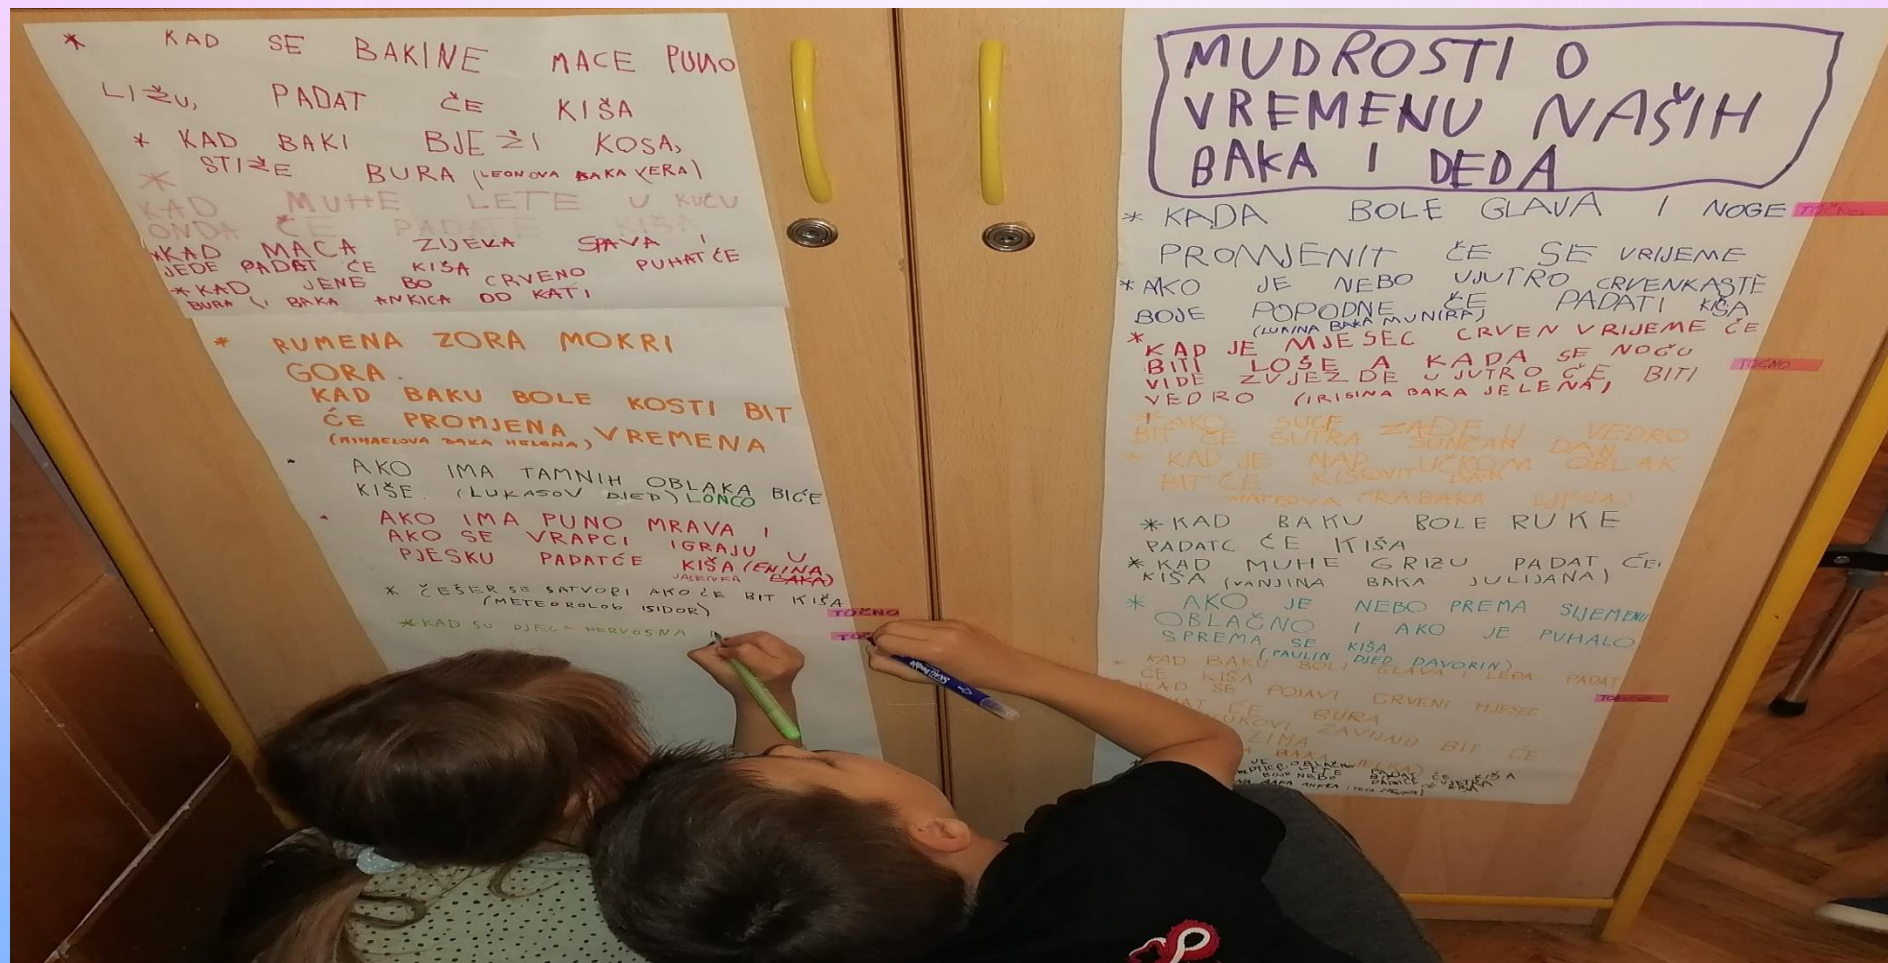 * KAD SE BAKINE MACE PUNO
LIŽU, PADAT ČE KIŠA
* KAD BAKI BJEŽI KOSA,
STIŽE BURA (LEONOVA BAKA VERA)
*
KAD MUHE LETE U KUĆU
ONDA ČE PADATE KIŠA
*KAD MACA ZIJEVA SPAVA I
JEDE PADAT ĆE KIŠA
*KAD JENE BO CRVENO PUHAT ĆE
BURA BAKA ANKICA OD KATI
* RUMENA ZORA MOKRI
GORA.
KAD BAKU BOLE KOSTI BIT
ĆE PROMJENA VREMENA
(MIHAELOVA BAKA HELENA)
AKO IMA TAMNIH OBLAKA BIĆE
KIŠE. (LUKASOV DJED) LONCO
AKO IMA PUNO MRAVA I
AKO SE VRAPCI IGRAJU U
PJESKU PADATĆE KIŠA (ENINA
JASENKA BAKA)
* ČEŠER SE SATVORI AKO ĆE BIT KIŠA
(METEOROLOG ISIDOR)
TOČNO
*KAD SU DJECA NERVOSNA
MUDROSTI O
VREMENU NAŠIH
BAKA I DEDA
* KADA BOLE GLAVA I NOGE TOČNO
PROMJENIT ČE SE VRIJEME
*AKO JE NEBO UJUTRO CRVENKASTE
BOJE POPODNE ĆE PADATI KIŠA
(LUKINA BAKA MUNIRA)
*
KAD JE MJESEC CRVEN VRIJEME ĆE
BITI LOŠE A KADA SE NOĆU
VIDE ZVJEZDE UJUTRO ĆE BITI TOČNO
VEDRO (IRISINA BAKA JELENA)
*AKO SUCE ZAĐE U VEDRO
BIT ČE SUTRA SUNČAN DAN
* KAD JE NAD UČKOM OBLAK
BIT ČE KIŠOVIT DAN
(MATEOVA PRABAKA)
* KAD BAKU BOLE RUKE
PADATC ĆE KIŠA
* KAD MUHE GRIZU PADAT ĆE
KIŠA (VANJINA BAKA JULIJANA)
* AKO JE NEBO PREMA SLJEMENU
OBLAČNO I AKO JE PUHALO
SPREMA SE KIŠA
(PAULIN DJED DAVORIN)
KAD BAKU BOLI GLAVA I LEĐA PADAT
ĆE KIŠA
KAD SE POJAVI CRVENI MJESEC
ĆE BURA
VUKOVI ZAVIJAJU BIT ĆE
ZIMA
BAKA
PTICE LETE PADAT ĆE KIŠA
BOJE NEBO
BAKA